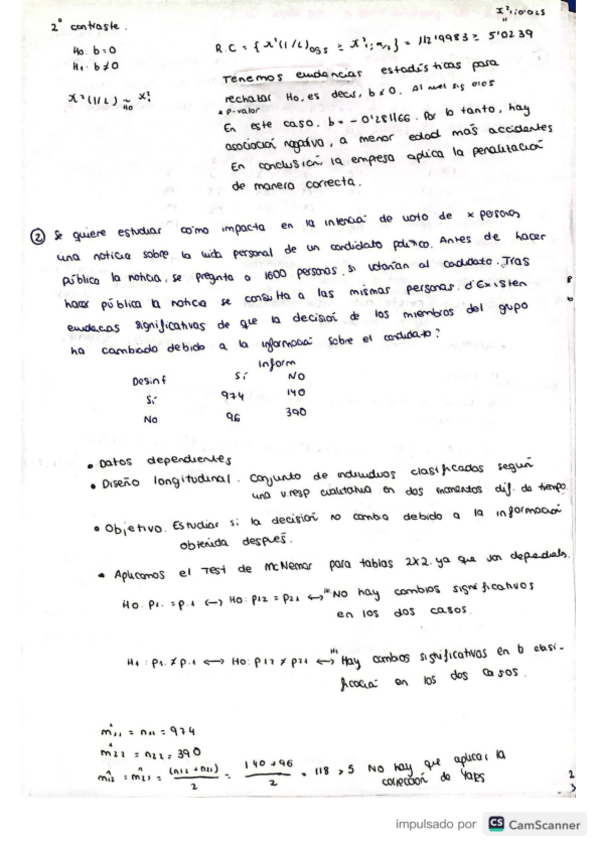 X²₁;0'025
2º contraste.
H0: b=0
H1: b≠0
R.C = { X²(1/L)OBS ≥ X²1;α/2 } = 112'9983 ≥ 5'0239
X²(1/L) ~H0 X²1
Tenemos evidencias estadísticas para
rechazar H0, es decir, b≠0. Al nivel sig 0'05
* P-valor
En este caso, b = -0'281166. Por lo tanto, hay
asociación negativa, a menor edad más accidentes
En conclusión, la empresa aplica la penalización
de manera correcta.
② Se quiere estudiar cómo impacta en la intención de voto de x personas
una noticia sobre la vida personal de un candidato político. Antes de hacer
pública la noticia, se pregunta a 1600 personas si votarían al candidato. Tras
hacer pública la noticia se consulta a las mismas personas. ¿Existen
evidencias significativas de que la decisión de los miembros del grupo
ha cambiado debido a la información sobre el candidato?
Inform
Desinf Sí NO
Sí 974 140
No 96 390
• Datos dependientes
• Diseño longitudinal. Conjunto de individuos clasificados según
una v.resp cualitativa en dos momentos dif. de tiempo.
• Objetivo. Estudiar si la decisión no cambia debido a la información
obtenida después.
• Aplicamos el Test de McNemar para tablas 2x2. ya que son
H0: p1. = p.1 ↔ H0: p12 = p21 ↔ "No hay cambios significativos
en los dos casos.
H1: p1. ≠ p.1 ↔ H0: p12 ≠ p21 ↔ "Hay cambios significativos en la clasi-
ficación en los dos casos.
m̂11 = n11 = 974
m̂22 = n22 = 390
m̂12 = m̂21 = (n12 + n21)/2 = 140+96/2 = 118 > 5 No hay que aplicar la
corrección de Yates
impulsado por CS CamScanner